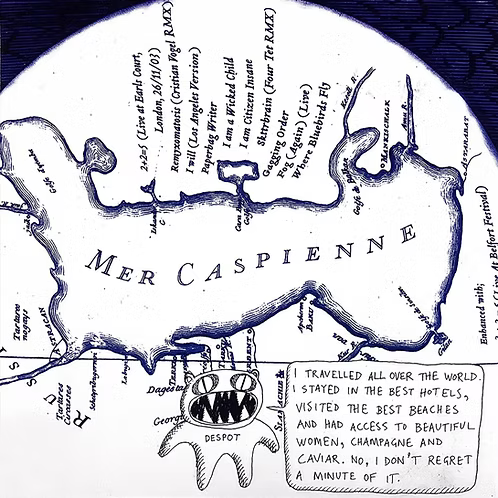 2+2=5 (Live at Earls Court,
London, 26/11/03)
Remyxomatosis (Cristian Vogel RMX)
I will (Los Angeles Version)
Paperbag Writer
I am a Wicked Child
I am Citizen Insane
Skttrbrain (Four Tet RMX)
Gagging Order
Fog (Again) (Live)
Where Bluebirds Fly
MANKISCHLAK
MER CASPIENNE
Enhanced with;
2+2=5 (Live at Belfort Festival)
Tartares
nogays
ASTRACAN
Tartares
Circasses
Dagestan
Georgie
BAKU
DESPOT
I TRAVELLED ALL OVER THE WORLD.
I STAYED IN THE BEST HOTELS,
VISITED THE BEST BEACHES
AND HAD ACCESS TO BEAUTIFUL
WOMEN, CHAMPAGNE AND
CAVIAR. NO, I DON'T REGRET
A MINUTE OF IT.